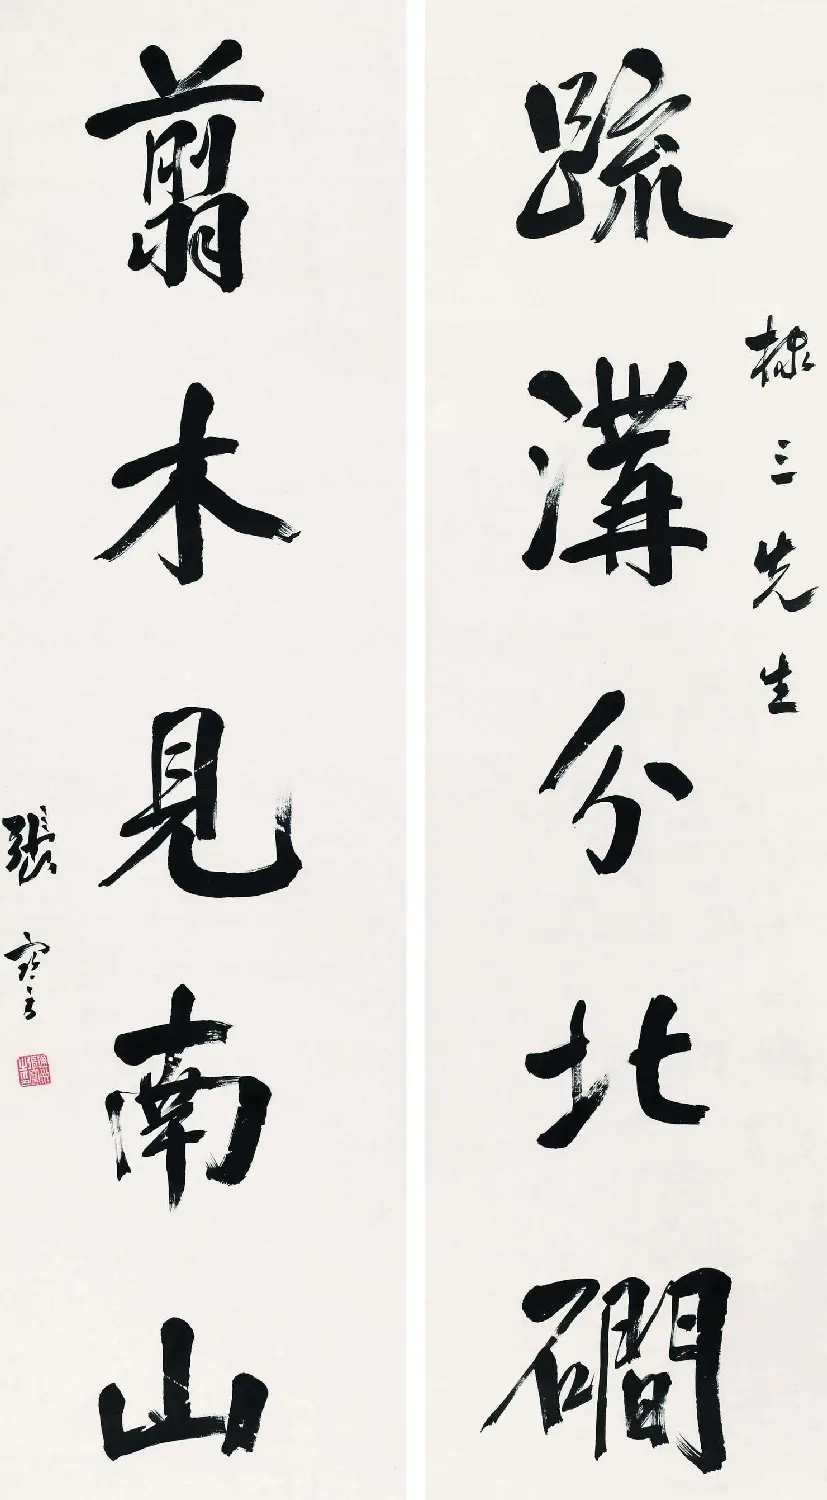 疏溝分北磵
棣三先生
翦木見南山
張